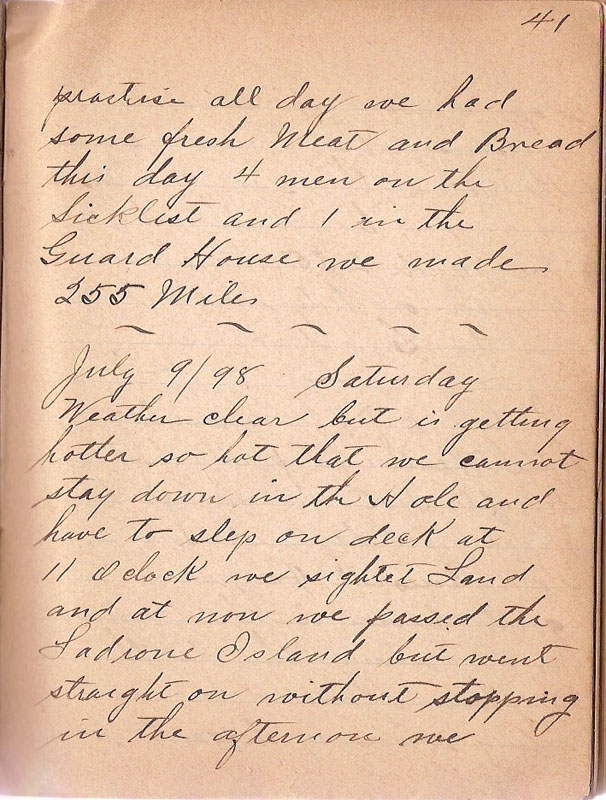 41
practise all day we had
some fresh Meat and Bread
this day 4 men on the
Sicklist and 1 in the
Guard House we made
255 Miles
July 9/98 Saturday
Weather clear but is getting
hotter so hot that we cannot
stay down in the Hole and
have to slep on deck at
11 Oclock we sightet Land
and at non we passed the
Ladrone Island but went
straight on without stopping
in the afternoon we